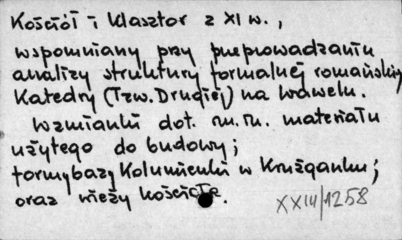 Kościół i klasztor z XI w.,
wspomniany przy przeprowadzaniu
analizy struktury formalnej romańskiej
Katedry (Tzw. Drugiej) na Wawelu.
Wzmianki dot. m.in. materiału
użytego do budowy;
formy bazy Kolumienki w Krużganku;
oraz wieży kościoła.
XXIII/1258